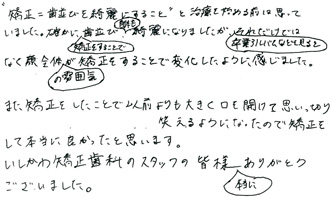 "矯正=歯並びを綺麗にすること"と治療を始める前は思って
いました。確かに、歯並びも綺麗になりましたが、それだけでは
矯正をすることで
卒業アルバムなどを見ると
なく顔全体が矯正をすることで変化したように感じました。
の雰囲気
また矯正をしたことで以前よりも大きく口を開けて思いっ切り
笑えるようになったので矯正を
して本当に良かったと思います。
いしかわ矯正歯科のスタッフの皆様ありがとう
本当に
ございました。